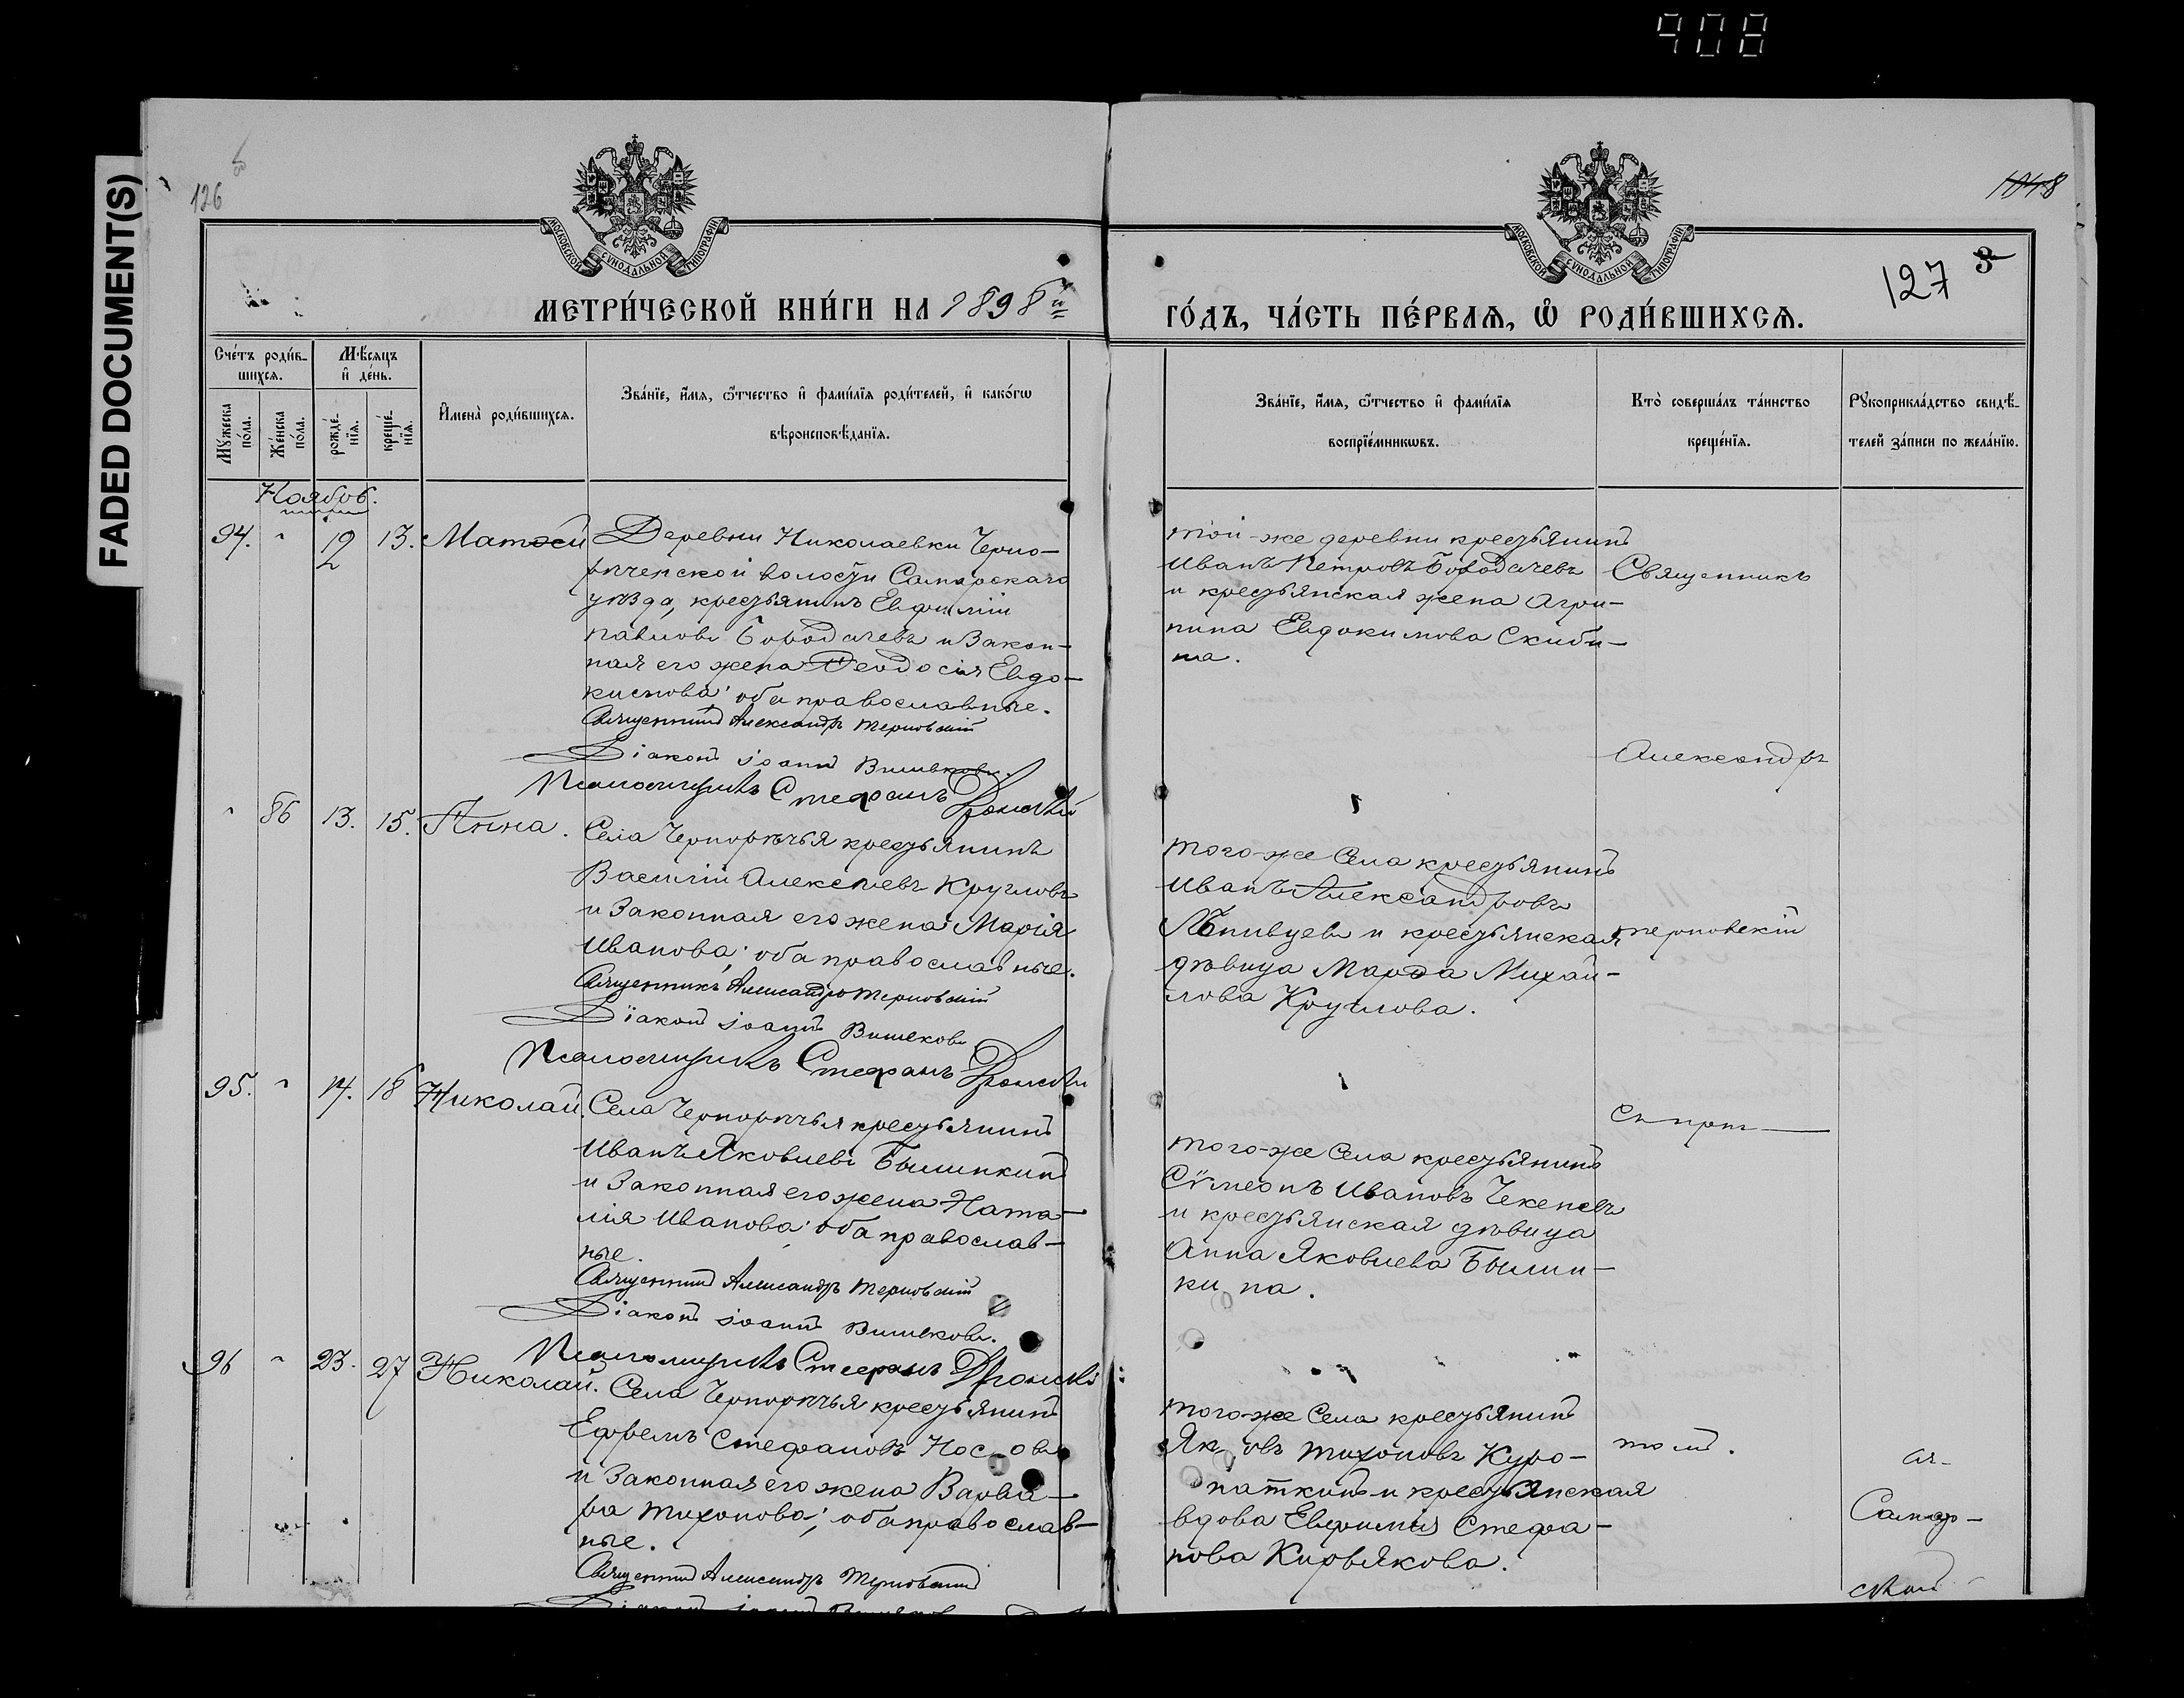 908
FADED DOCUMENT(S)
126
1048
127
МОСКОВСКОЙ СѴНОДАЛЬНОЙ ТИПОГРАФІИ
МОСКОВСКОЙ СѴНОДАЛЬНОЙ ТИПОГРАФІИ
МЕТРИ́ЧЕСКОЙ КНИ́ГИ НА 1898й
ГО́ДЪ, ЧА́СТЬ ПЕ́РВАѦ, Ѡ҆ РОДИ́ВШИХСѦ.
Сче́тъ роди́в-
шихсѧ.
Мѣ́сѧцъ
и҆ де́нь.
Мꙋ́жеска
по́ла.
Же́нска
по́ла.
рожде́-
нїѧ.
креще́-
нїѧ.
И҆мена̀ роди́вшихсѧ.
Зва́нїе, и҆́мѧ, ѻ҆́тчество и҆ фами́лїѧ роди́телей, и҆ како́гѡ
вѣроисповѣ́данїѧ.
Зва́нїе, и҆́мѧ, ѻ҆́тчество и҆ фами́лїѧ
воспрїе́мникѡвъ.
Кто̀ соверша́лъ та́инство
креще́нїѧ.
Рꙋкоприкла́дство свидѣ́-
телей за́писи по жела́нїю.
Ноябрь.
94. " 12 13. Матѳей Деревни Николаевки Черно-
рѣченской волости Самарскаго
уѣзда, крестьянинъ Евфимій
Павловъ Бородачевъ и закон-
ная его жена Ѳеодосія Евдо-
кимова; оба православные.
Священникъ Александръ Терновскій
Діаконъ Іоаннъ Вишековъ.
Псаломщикъ Стефанъ
той-же деревни крестьянинъ
Иванъ Петровъ Бородачевъ
и крестьянская жена Агри-
пина Евдокимова Скиби-
на.
Священникъ
Александръ
" 86 13. 15. Анна. Села Чернорѣчья крестьянинъ
Василій Алексѣевъ Кругловъ
и законная его жена Марія
Иванова; оба православные.
Священникъ Александръ Терновскій
Діаконъ Іоаннъ Вишековъ
Псаломщикъ Стефанъ
того-же села крестьянинъ
Иванъ Александровъ
и крестьянская
дѣвица Марѳа Михай-
лова Круглова.
Терновскій
95. " 14. 18 Николай. Села Чернорѣчья крестьянинъ
Иванъ Яковлевъ Былинкинъ
и законная его жена Ната-
лія Иванова; оба православ-
ные.
Священникъ Александръ Терновскій
Діаконъ Іоаннъ Вишековъ.
Псаломщикъ Стефанъ
того-же села крестьянинъ
Сѵмеонъ Ивановъ
и крестьянская дѣвица
Анна Яковлева Былин-
кина.
96 " 23. 27 Николай. Села Чернорѣчья крестьянинъ
Ефремъ Стефановъ Носовъ
и законная его жена Варва-
ра Тихонова; оба православ-
ные.
Священникъ Александръ Терновскій
того-же села крестьянинъ
Яковъ Тихоновъ Куро-
паткинъ и крестьянская
вдова Евфимія Стефа-
нова Кирьякова.
Самар-
ской